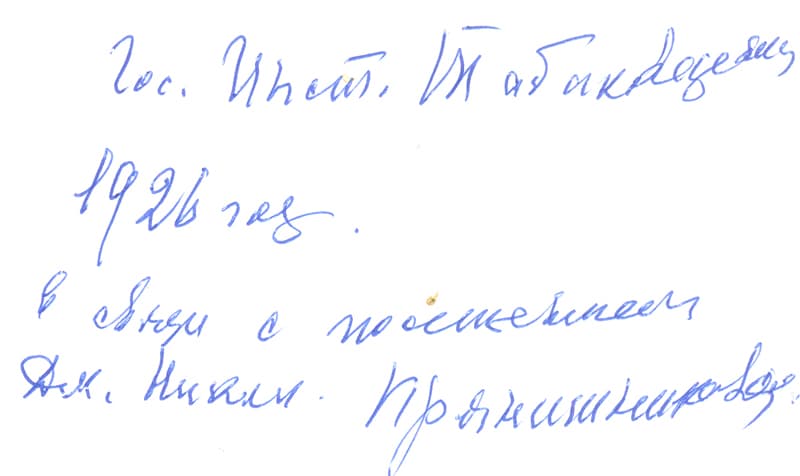 Гос. Инст. Табаководения
1926 год.
в связи с посещением
Дм. Никол. Прянишникова.